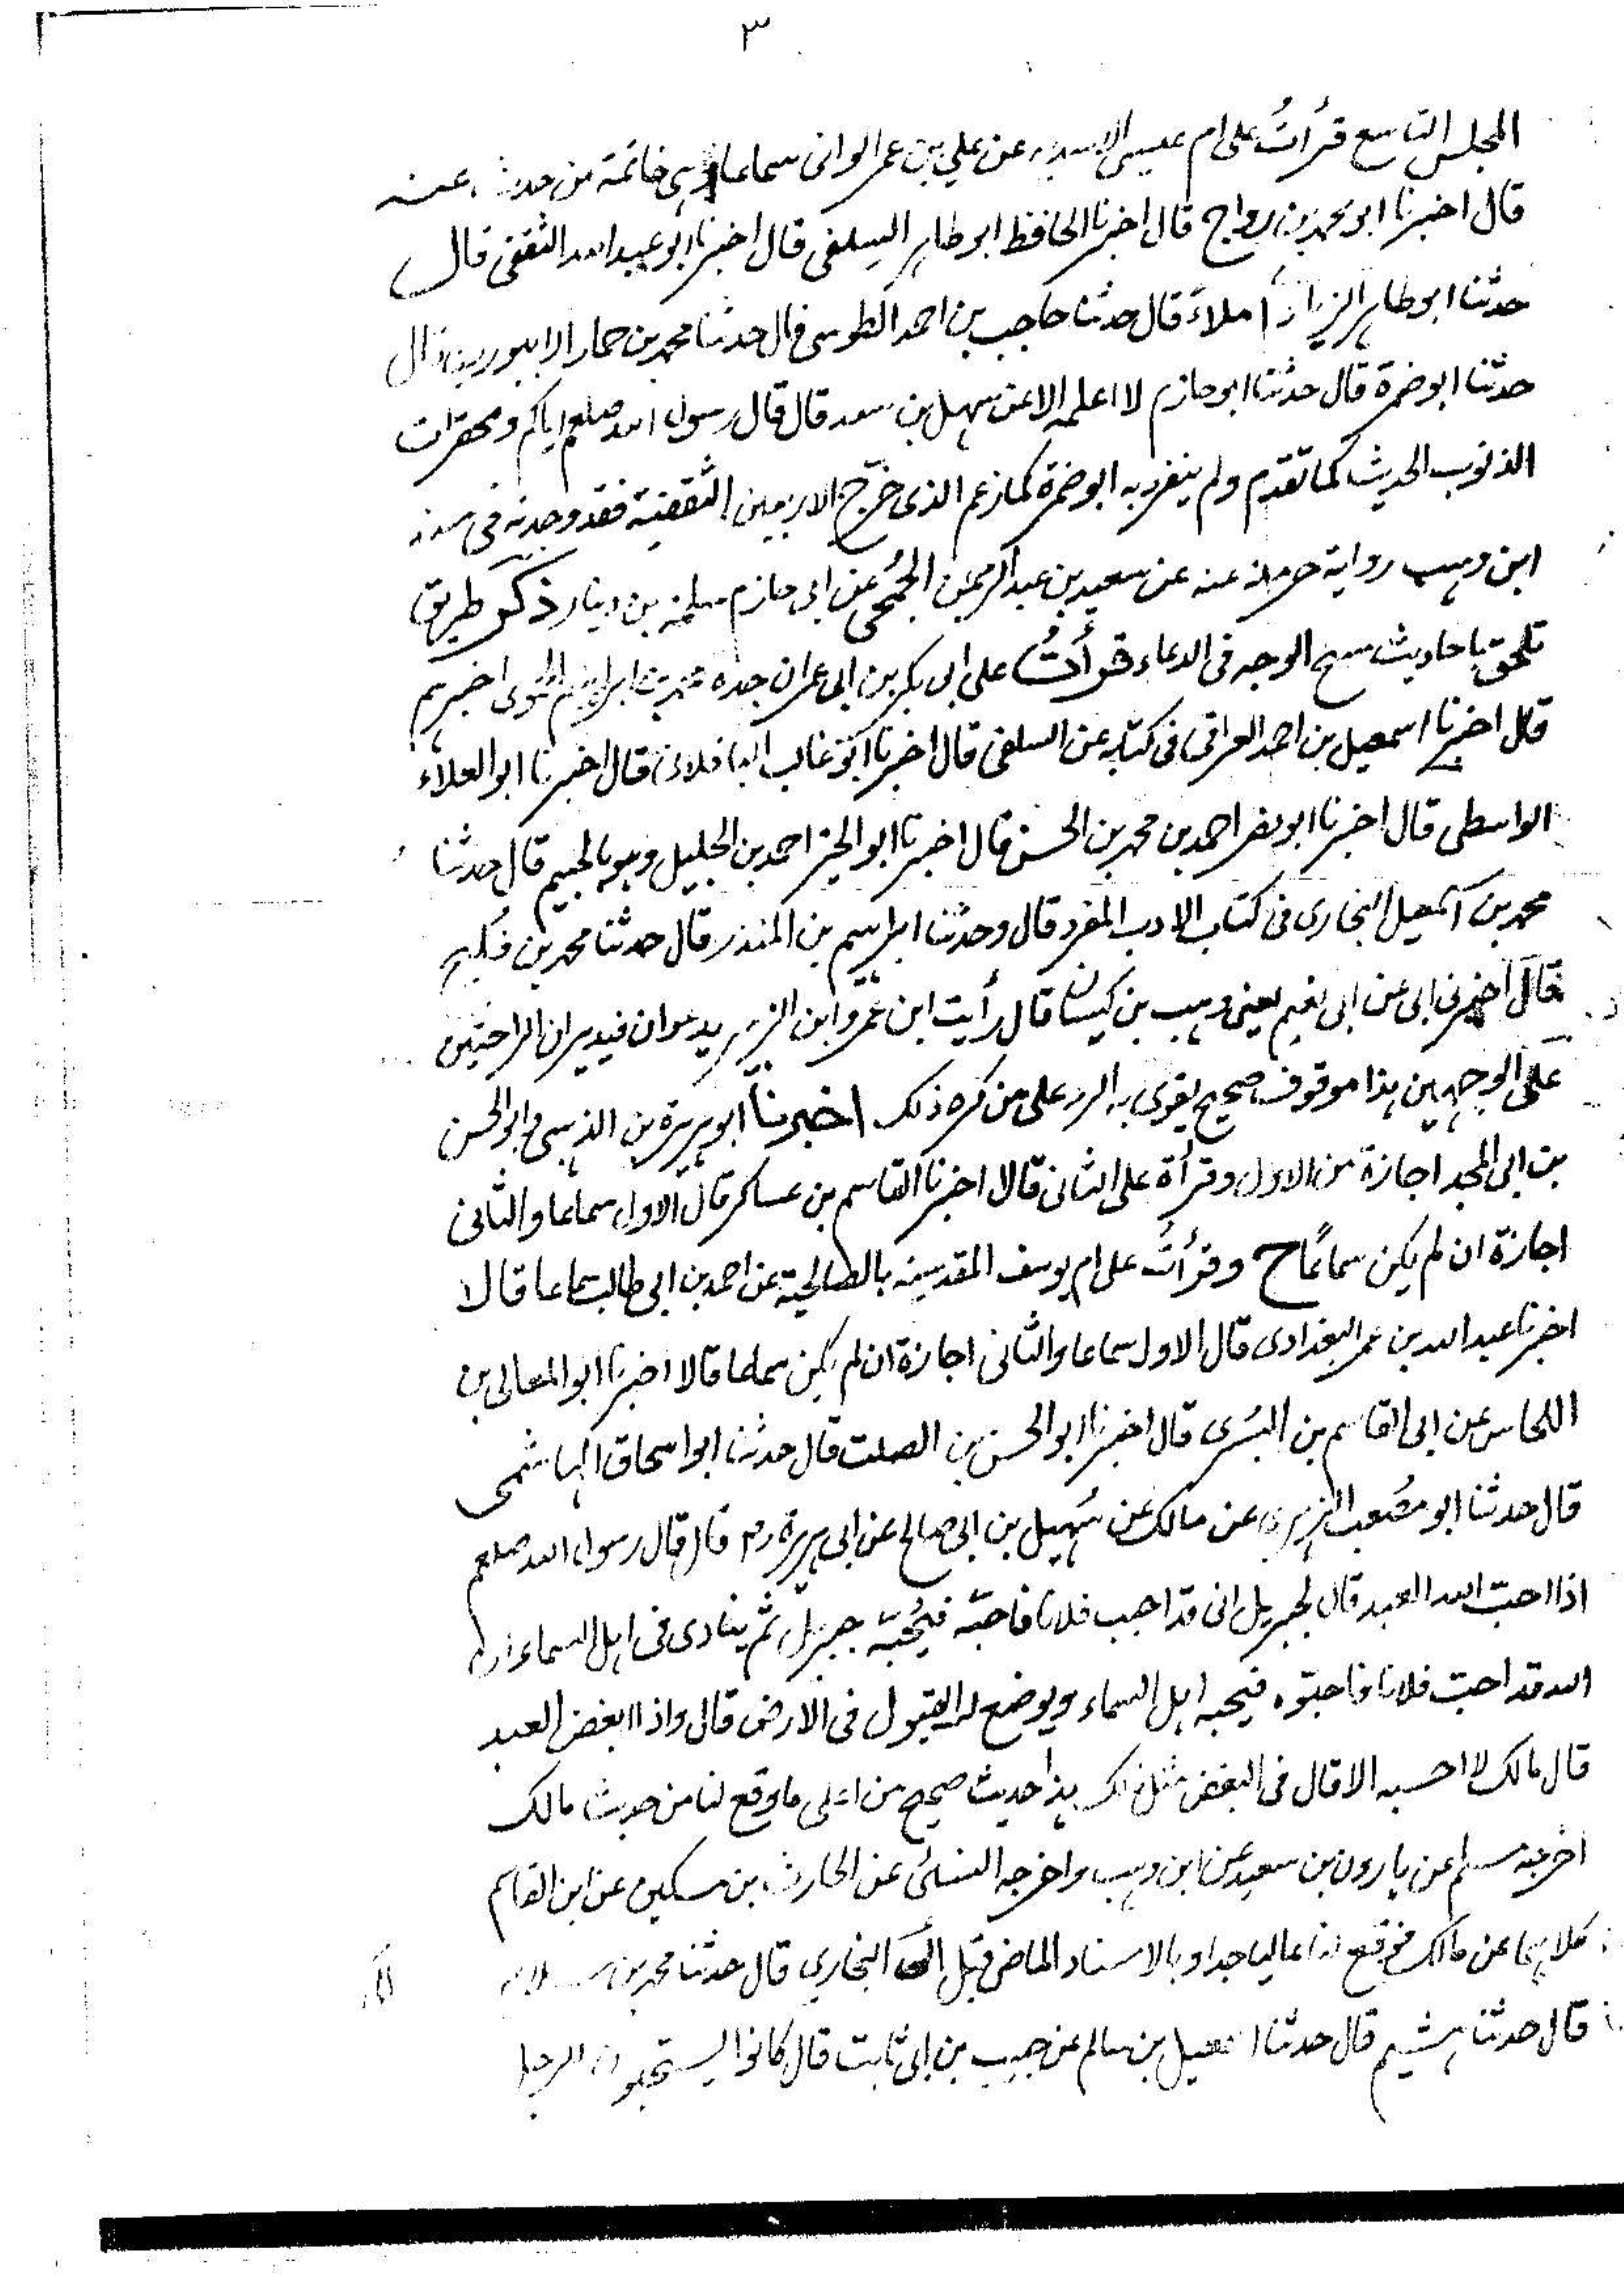 ٣
المجلس التاسع قرأتُ على ام عيسى الاسدية عن علي بن عمر الوانى سماعا وهى خاتمة من حدث عنه
قال اخبرنا ابو محمد بن رواج قال اخبرنا الحافظ ابو طاهر السلفى قال اخبرنا ابو عبد الله الثقفى قال
حدثنا ابو طاهر الزيادى املاءً قال حدثنا حاجب بن احمد الطوسى قال حدثنا محمد بن حماد الابيوردى قال
حدثنا ابو ضمرة قال حدثنا ابو حازم لا اعلمه الا عن سهل بن سعد قال قال رسول الله صلعم اياكم ومحقرات
الذنوب الحديث كما تقدم ولم ينفرد به ابو ضمرة كما زعم الذى خرّج الاربعين الثقفية فقد وجدته فى مسند
ابن وهب رواية حرملة عنه عن سعيد بن عبد الرحمن الجُمحى عن ابى حازم سلمة بن دينار ذكر طريق
تلحق باحاديث مسح الوجه فى الدعاء قرأتُ على ابى بكر بن ابى عمر ان جده محمد بن ابراهيم الحموى اخبرهم
قال اخبرنا اسمعيل بن احمد العراقى فى كتابه عن السلفى قال اخبرنا ابو غالب الباقلانى قال اخبرنا ابو العلاء
الواسطى قال اخبرنا ابو نصر احمد بن محمد بن الحسن قال اخبرنا ابو الخير احمد بن الجليل وهو بالجيم قال حدثنا
محمد بن اسمعيل البخارى فى كتاب الادب المفرد قال وحدثنا ابراهيم بن المنذر قال حدثنا محمد بن فليح
قال اخبرنى ابى عن ابى نعيم يعنى وهب بن كيسان قال رأيت ابن عمر وابن الزبير يدعوان فيديران الراحتين
على الوجهين هذا موقوف صحيح يقوى به الرد على من كره ذلك اخبرنا ابو هريرة بن الذهبى وابو الحسن
بن ابى المجد اجازة من الاول وقرأة على الثانى قالا اخبرنا القاسم بن عساكر قال الاول سماعا والثانى
اجازة ان لم يكن سماعًا ح وقرأتُ على ام يوسف المقدسية بالصالحية عن احمد بن ابى طالب سماعا قالا
اخبرنا عبد الله بن عمر البغدادى قال الاول سماعا والثانى اجازة ان لم يكن سماعا قالا اخبرنا ابو المعالى بن
اللحاس عن ابى القاسم بن البُسْرى قال اخبرنا ابو الحسن بن الصلت قال حدثنا ابو اسحاق الهاشمى
قال حدثنا ابو مصعب الزهرى عن مالك عن سُهيل بن ابى صالح عن ابى هريرة رم قال قال رسول الله صلعم
اذا احبّ الله العبد قال لجبريل انى قد احبب فلانا فاحبّه فيُحبّه جبريل ثم ينادى فى اهل السماء ان
الله قد احبّ فلانا فاحبّوه فيحبه اهل السماء ويوضع له القبول فى الارض قال واذا ابغض العبد
قال مالك لا احسبه الا قال فى البغض مثل ذلك هذا حديث صحيح من اعلى ما وقع لنا من حديث مالك
اخرجه مسلم عن هارون بن سعيد عن ابن وهب واخرجه النسائى عن الحارث بن مسكين عن ابن القاسم
كلاهما عن مالك فوقع لنا عاليا جدا وبالاسناد الماضى قبل الى البخاري قال حدثنا محمد بن سلام
قال حدثنا هشيم قال حدثنا اسمعيل بن سالم عن حبيب بن ابى ثابت قال كانوا يستحبون الرجل